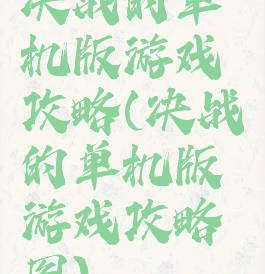 决战的单
机版游戏
攻略(决战
的单机版
游戏攻略
图)